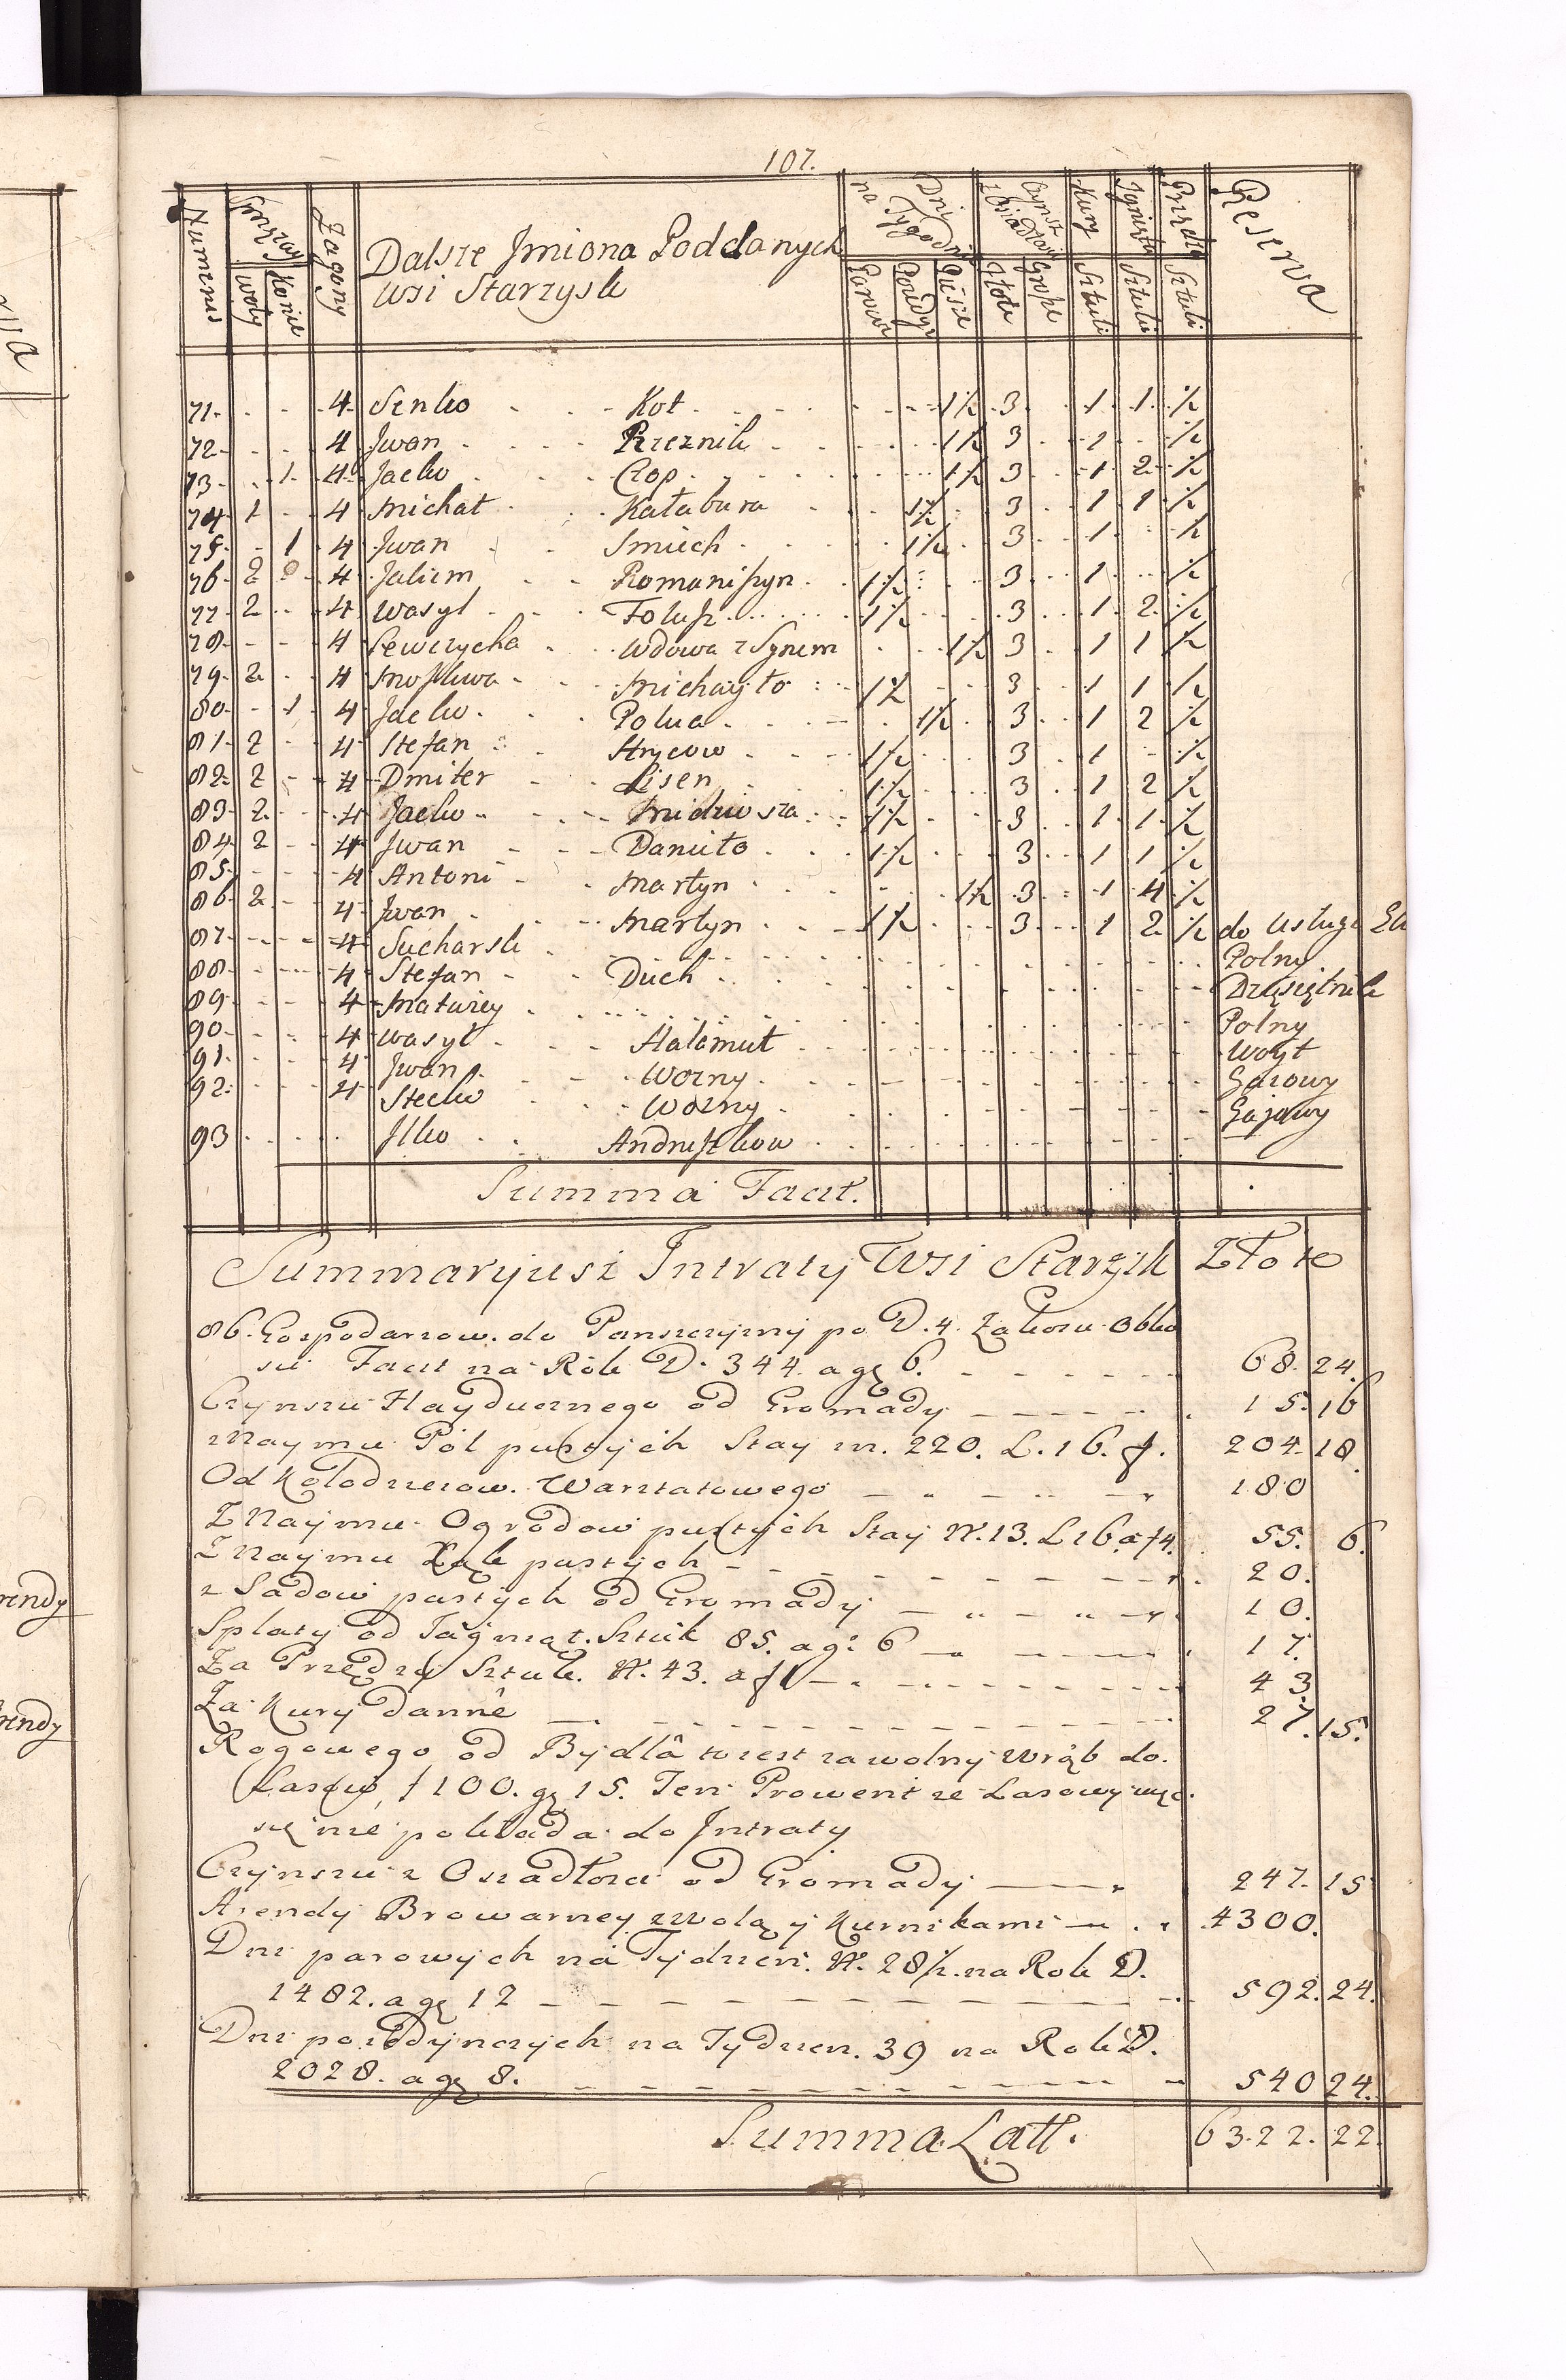 107.
Numerus Sprzęzay Zagony Dalsze Jmiona Poddanych Dni na Tygodnie Czynsz z Osiadłości Kury Jagnięta Przędza Reserva
Woły Konie wsi Starzysk Parowe Poiedyn Piesze Złote Grosze Sztuki Sztuki Sztuki
71. 4 Senko Kot 1½ 3 1 1 ½
72. 4 Jwan Rzeznik 1½ 3 1 ½
73. 1 4 Jacko Czop 1½ 3 1 2 ½
74. 1 4 Michał Katabura 1½ 3 1 1 ½
75. 1 4 Jwan Smiech 1½ 3 1 ½
76. 2 4 Jakim Romaniszyn 1½ 3 1 ½
77. 2 4 Wasyl Folusz 1½ 3 1 2 ½
78. 4 Sewczycha Wdowa z Synem 1½ 3 1 1 ½
79. 2 4 Moskwa Michayło 1½ 3 1 1 ½
80. 1 4 Jacko Polua 1½ 3 1 2 ½
81. 2 4 Stefan Hrycow 1½ 3 1 ½
82. 2 4 Dmiter Lisen 1½ 3 1 2 ½
83. 2 4 Jacko 1½ 3 1 1 ½
84. 2 4 Jwan Daniło 1½ 3 1 1 ½
85. 4 Antoni Martyn 1½ 3 1 4 ½
86. 2 4 Jwan Martyn 1½ 3 1 2 ½
87. 4 Sucharski do Usługi
88. 4 Stefan Duch Polny
89. 4 Matwiey Dziesiętnik
90. 4 Wasyl Halamut Polny
91. 4 Jwan Wozny Woyt
92. 4 Stecko Wozny Gajowy
93 Jlko Andruszkow Gajowy
Summa Facit.
Summaryusz Intraty Wsi Starzysk Złote
86. Gospodarzow do Panszczyzny po D. 4. Zakosu Obko
si Facit na Rok D. 344. a gę 6. 68. 24.
Czynszu Hayducznego od Gromady 15. 16
Naymu Pól pustych Stay nr. 220. L. 16. f. 204. 18.
Od Kołodzieiow Warsztatowego 180
Z Naymu Ogrodow pustych Stay N. 13. L 16. a f 4. 55. 6.
Z Naymu Łąk pustych 20.
z Sadow pustych od Gromady 10.
Spłaty od Jagniąt Sztuk 85. a g: 6 17.
Za Przędzy Sztuk. N. 43. a f 1 43
Za Kury danne 27. 15.
Rogowego od Bydła to iest za wolny Wrąb do
Lasow, f 100. gę 15. Ten Prowent ze Lasowy więc
się nie pokłada do Jntraty
Czynszu z Osiadłosci od Gromady 247. 15
Arendy Browarney z Wolą y Kurnikami 4300.
Dni parowych na Tydzien. N. 28½. na Rok D.
1482. a gę 12 592. 24.
Dni poiedynczych na Tydzien. 39 na Rok D.
2028. a gę 8. 540 24.
Summa Latt. 6322. 22.